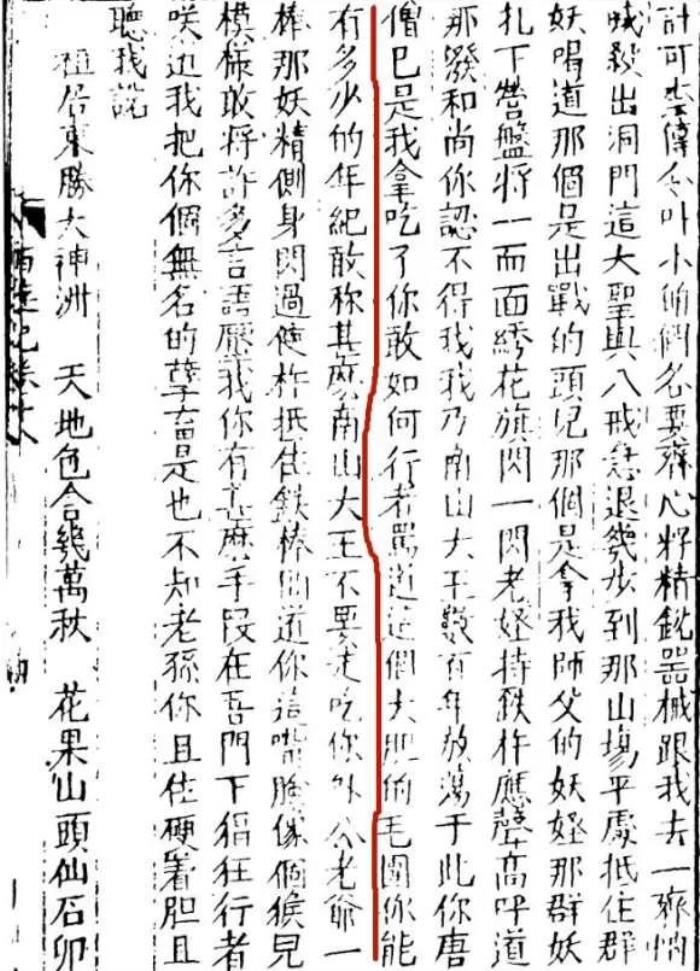 計可傳令叫小的們各要齊心將精銳器械跟我去一齊吶
喊殺出洞門這大聖與八戒急退幾步到那山場平處抵住群
妖喝道那個是出戰的頭兒那個是拿我師父的妖怪那群妖
扎下營盤將一面面綉花旗閃一閃老怪持鉄杵應聲高呼道
那潑和尚你認不得我我乃南山大王數百年放蕩于此你唐
僧已是我拿吃了你敢如何行者罵道這個大胆的毛團你能
有多少的年紀敢称甚麽南山大王不要走吃你外公老爺一
棒那妖精側身閃過使杵抵住鉄棒問道你這嘴臉像個猴兒
模樣敢將許多言語壓我你有甚麽手段在吾門下猖狂行者
咲道我把你個無名的孽畜是也不知老孫你且住硬着胆且
聽我說
祖居東勝大神洲 天地包含幾萬秋 花果山頭仙石卵